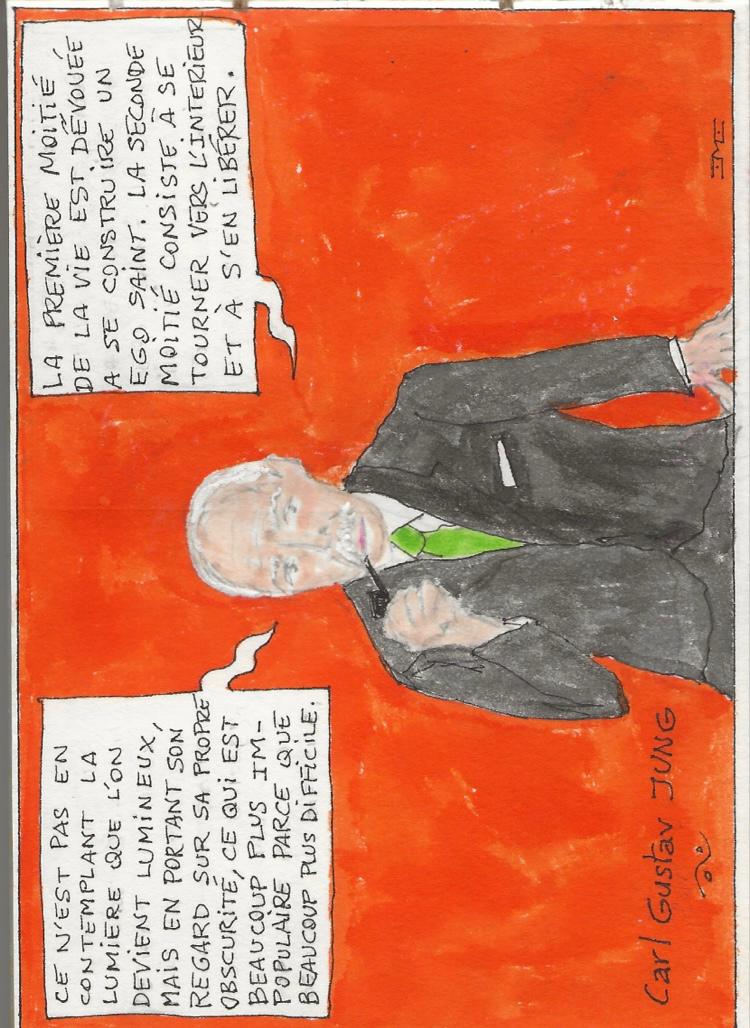 CE N'EST PAS EN
CONTEMPLANT LA
LUMIÈRE QUE L'ON
DEVIENT LUMINEUX,
MAIS EN PORTANT SON
REGARD SUR SA PROPRE
OBSCURITÉ, CE QUI EST
BEAUCOUP PLUS IM-
POPULAIRE PARCE QUE
BEAUCOUP PLUS DIFFICILE.
LA PREMIÈRE MOITIÉ
DE LA VIE EST DÉVOUÉE
A SE CONSTRUIRE UN
EGO SAINT. LA SECONDE
MOITIÉ CONSISTE À SE
TOURNER VERS L'INTERIEUR
ET À S'EN LIBÉRER.
Carl Gustav JUNG